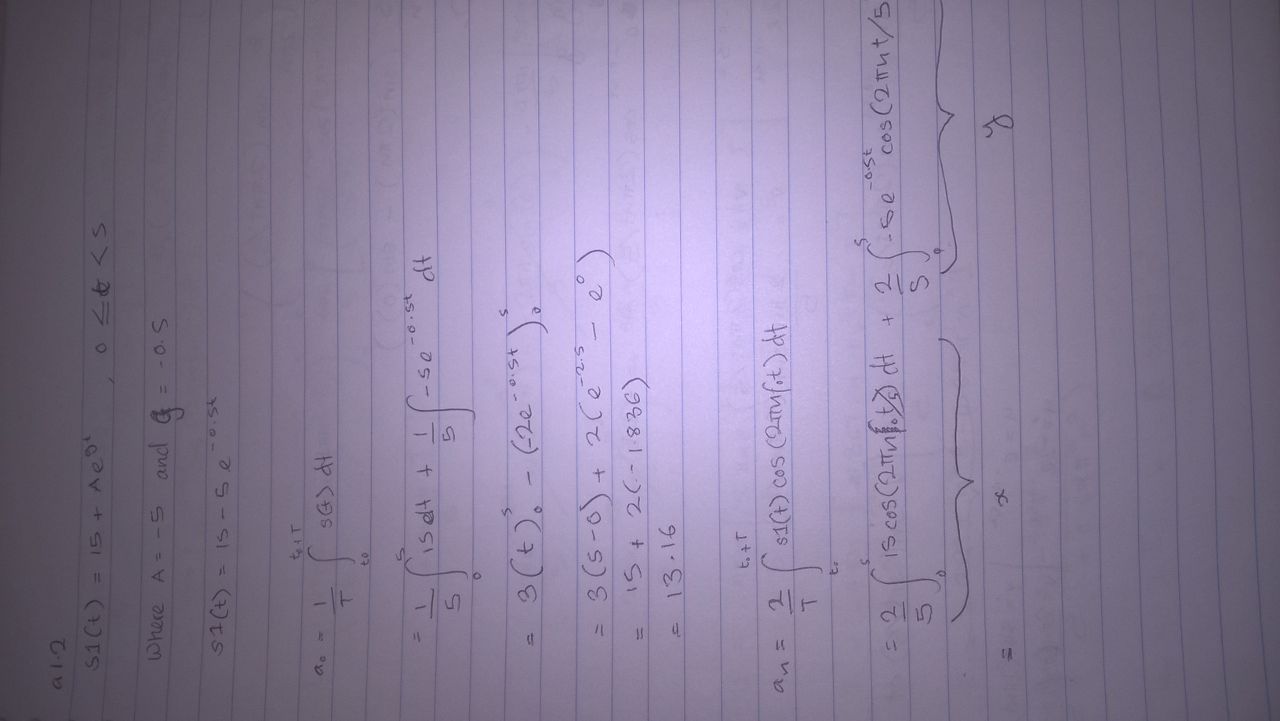 a1.2
s1(t) = 15 + Ae^gt , 0 ≤ t < 5
Where A = -5 and g = -0.5
s1(t) = 15 - 5e^-0.5t
a₀ = 1/T ∫_t0^t₀+T s(t) dt
= 1/5 ∫_0^5 15 dt + 1/5 ∫ -5e^-0.5t dt
= 3(t)_0^5 - (-2e^-0.5t)_0^5
= 3(5-0) + 2(e^-2.5 - e^0)
= 15 + 2(-1.836)
= 13.16
aₙ = 2/T ∫_t₀^t₀+T s1(t) cos(2πnf₀t) dt
= 2/5 ∫_0^5 15 cos(2πnt/5) dt + 2/5 ∫_0^5 -5e^-0.5t cos(2πnt/5
= x y